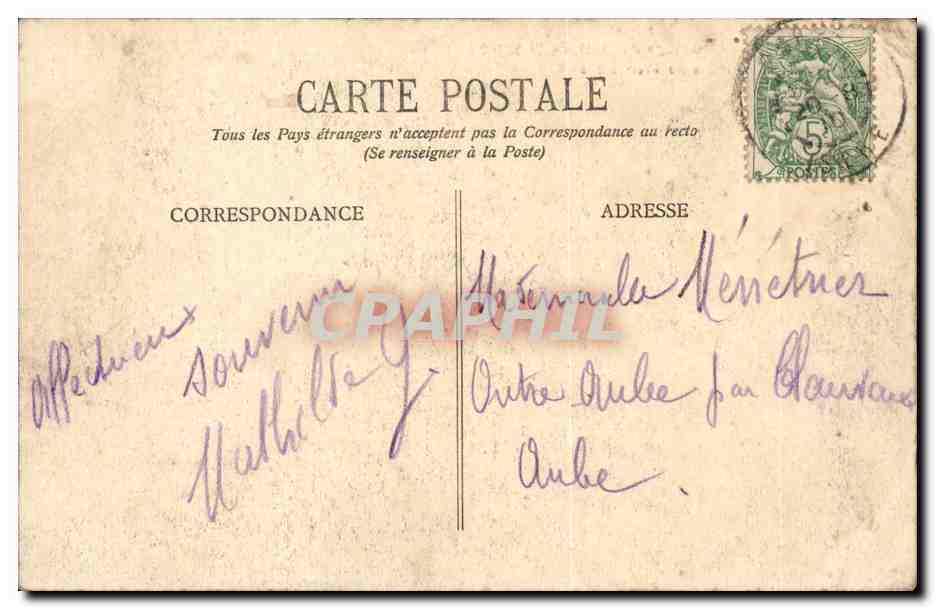 CARTE POSTALE
Tous les Pays étrangers n'acceptent pas la Correspondance au recto
(Se renseigner à la Poste)
CORRESPONDANCE
Affectueux
souvenir
Mathilde G.
ADRESSE
Mademoiselle Ménétrier
Outre Aube par Clairvaux
Aube.
5
POSTES
CPAPHIL